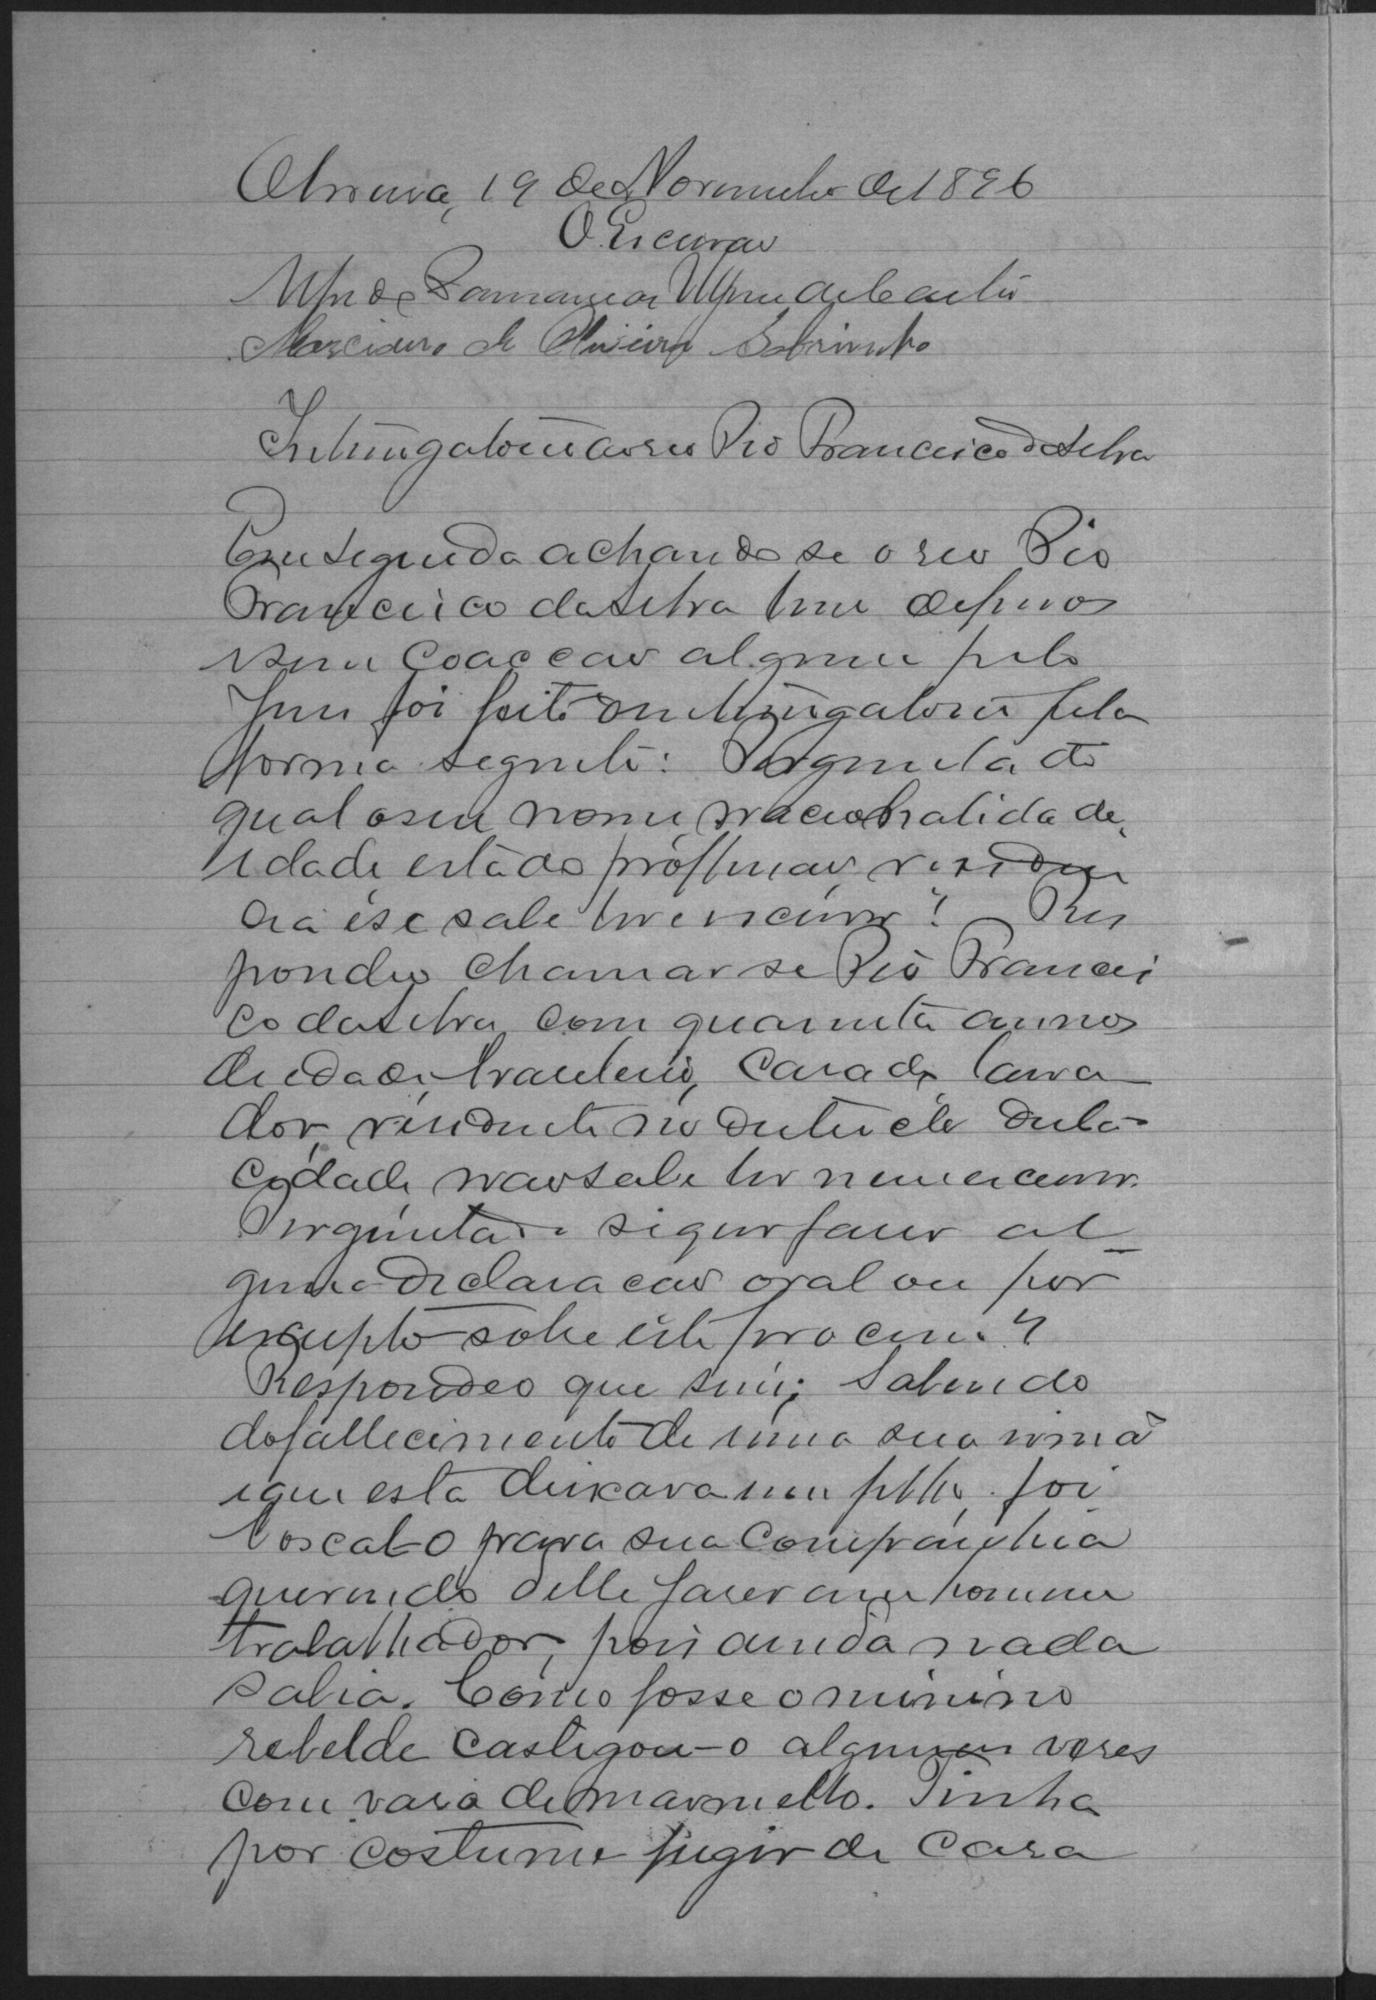 19 de Novembro de 1896
O Escrivão
de Oliveira Sobrinho
Interrogatorio ao reo Pio Francisco da Silva
Em seguida achando se o reo Pio
Francisco da Silva livre de ferros
e sem coacção alguma pelo
Juiz foi feito o interrogatorio pela
forma seguinte: Perguntado
qual o seu nome, nacionalidade,
idade, estado, profissão, residen
cia e se sabe ler e escrever? Res
pondeo chamar se Pio Francis
co da Silva, com quarenta annos
de idade, brasileiro, casado, lavra
dor, residente no districto desta
cidade, não sabe ler nem escrever.
Perguntado si quer fazer al
guma declaração oral ou por
escripto sobre este processo?
Respondeo que sim; Sabendo
do fallecimento de uma sua irmã
e que esta deixava um filho foi
boscal-o para sua companhia
querendo delle faser um homem
trabalhador, pois ainda nada
sabia. Como fosse o minino
rebelde castigou-o algumas veses
com vara de marmello. Tinha
por costume fugir de casa